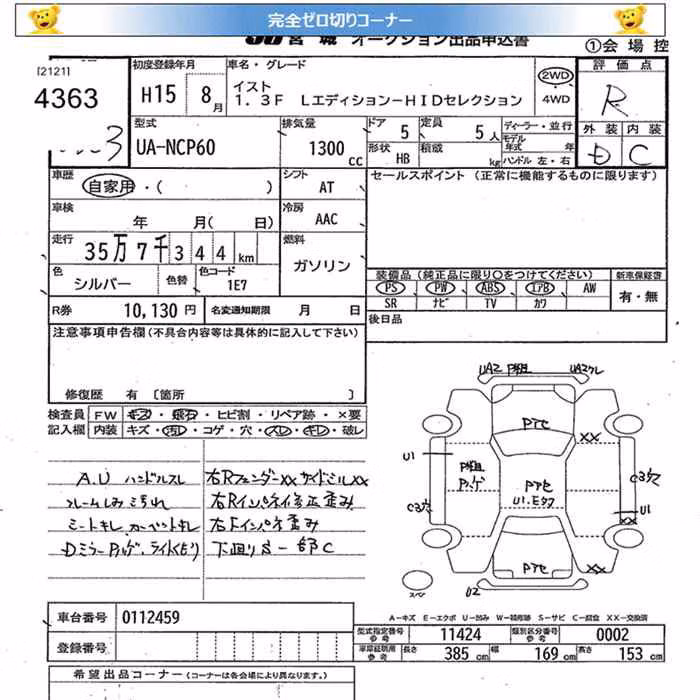 完全ゼロ切りコーナー
JU宮城 オークション出品申込書 ①会場控
[2121]
4363
初度登録年月
H15 8月
車名・グレード
イスト
1.3F LエディションーHIDセレクション
2WD
4WD
評価点
R
外装 内装
D C
型式
UA-NCP60
排気量
1300cc
ドア 5
定員 5人
形状 HB
積載 kg
ディーラー・並行
モデル年式 年
ハンドル 左・右
車歴
自家用・( )
シフト
AT
セールスポイント (正常に機能するものに限ります)
車検
年 月( 日)
冷房
AAC
走行
35万7千344km
燃料
ガソリン
色
シルバー
色替
色コード
1E7
装備品 (純正品に限り〇をつけてください)
PS PW ABS エアB AW
SR ナビ TV カワ
新車保証書
有・無
R券 10,130円
名変通知期限 月 日
後日品
注意事項申告欄(不具合内容等は具体的に記入して下さい)
修復歴 有 〔箇所 〕
検査員 FW キズ・飛石・ヒビ割・リペア跡・×要
記入欄 内装 キズ・汚れ・コゲ・穴・スレ・キレ・破レ
A.U ハンドルスレ
ルームしみ汚れ
シートキレ カーペットキレ
右Rフェンダーxx サイドシルxx
右Rインパネ修正歪み
右Fインパネ歪み
下廻りS一部C
UA2 P粗 UA2ワレ
Pアセ
XX
U1
P粗
Pハゲ
Pアセ
U1.Eタワ
C3穴
C3穴
U1
XX
Pアセ
XX
スペア
U2
A-キズ E-エクボ U-凹み W-補修跡 S-サビ C-腐食 XX-交換済
車台番号 0112459
登録番号
型式指定番号参考 11424
類別区分番号参考 0002
車庫証明用参考 長さ 385cm 幅 169cm 高さ 153cm
希望出品コーナー (コーナーは各会場により異なります。)